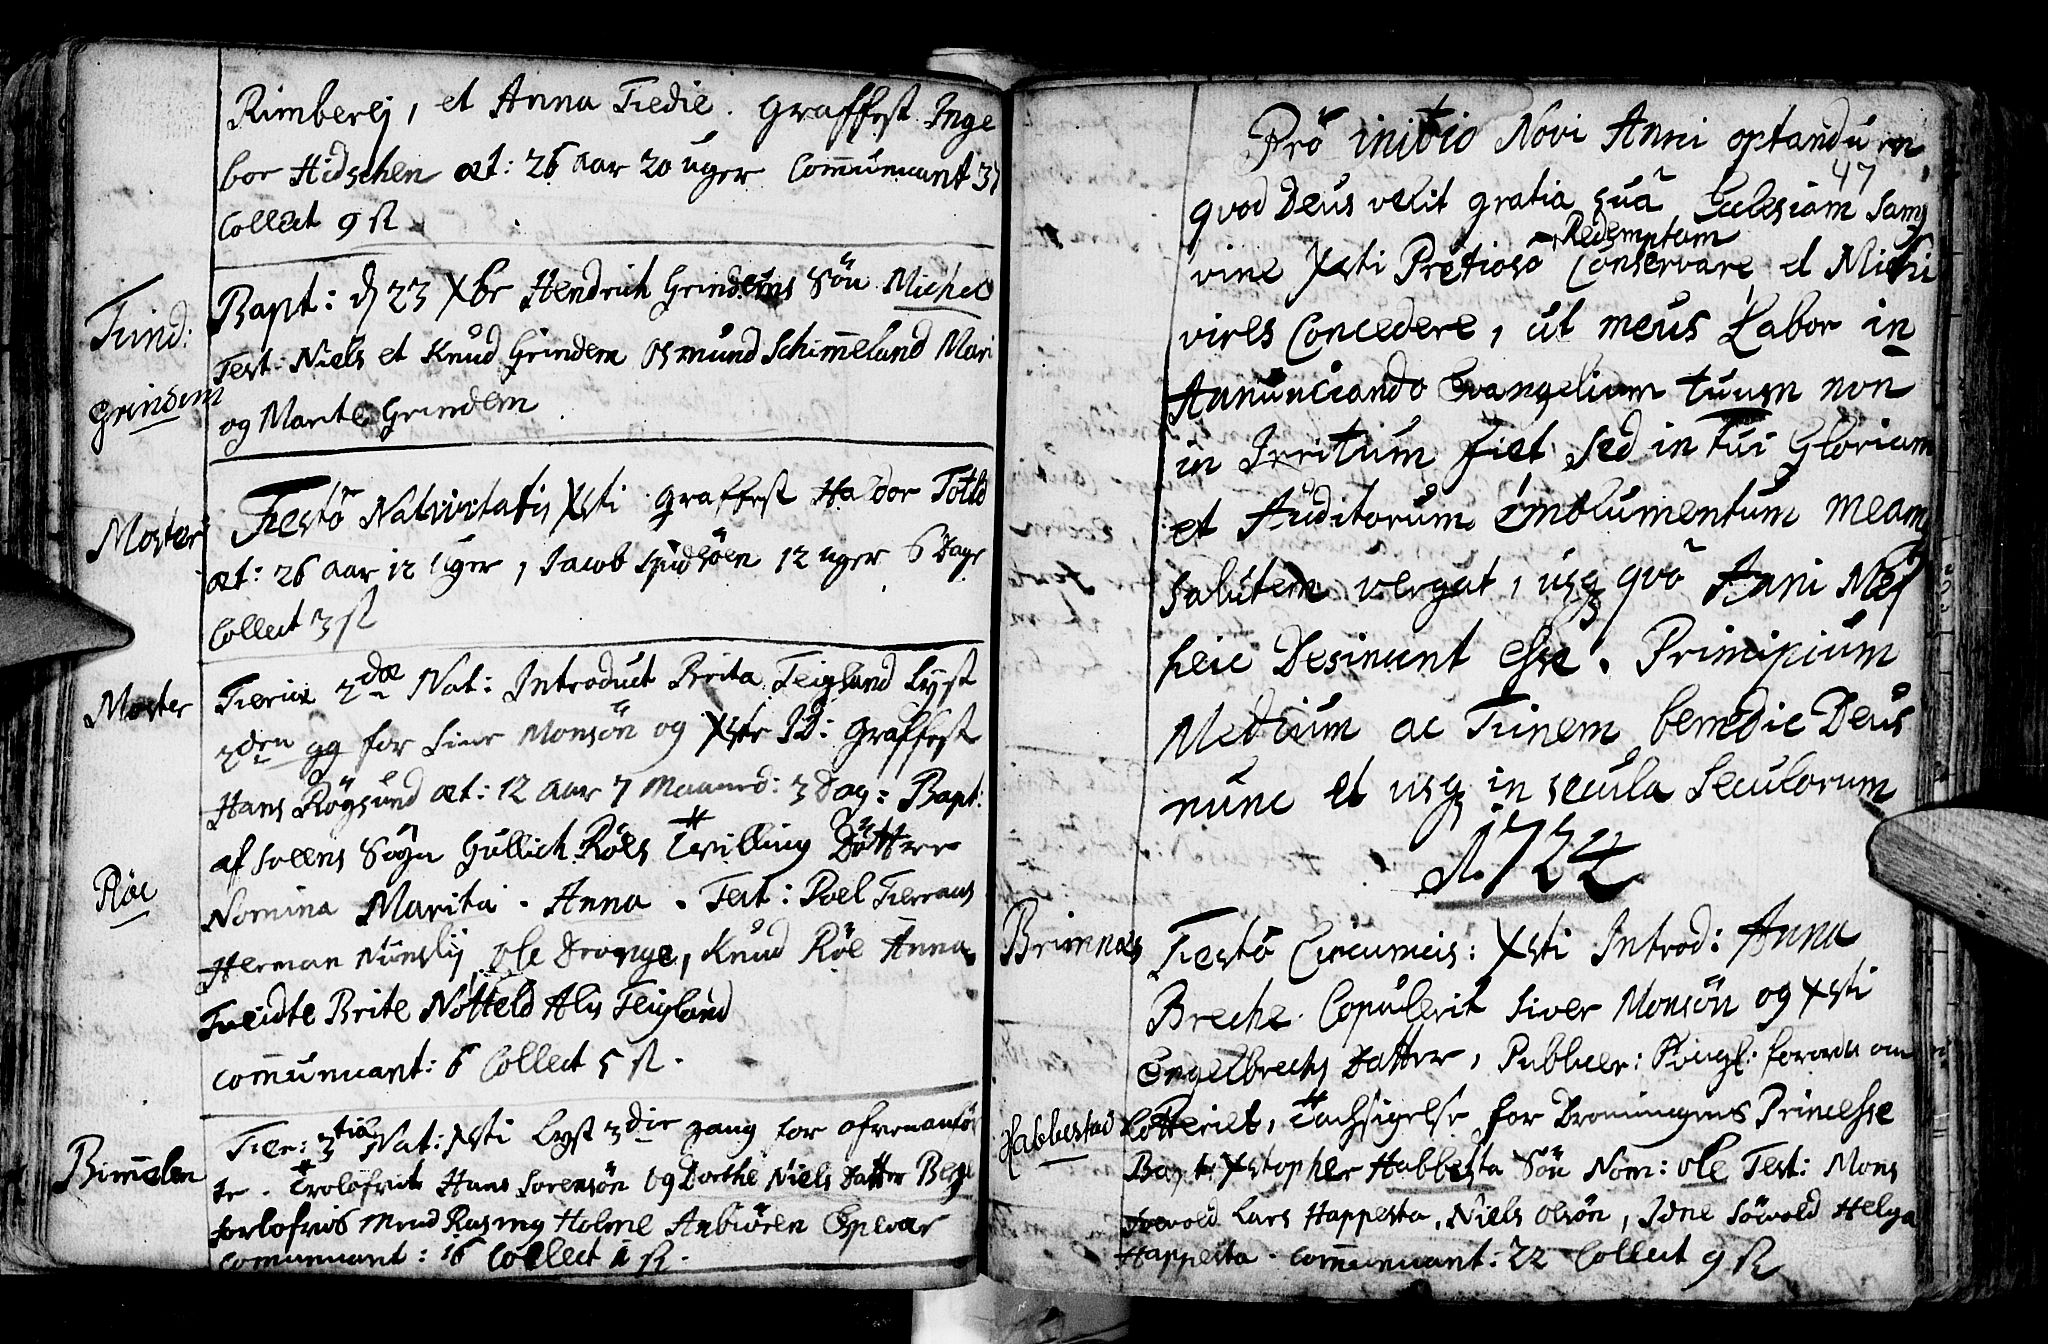 Rimberej, et Anna Fiedie. graffest Inge
bor Hidschen æt: 26 aar 20 uger Com̄unicant 37
Collect 9 ß
Find: Grindem
Bapt: d 23 Xbr Hendrich Grindems Sön Michel
Test: Niels et Knud Grindem Osmund Schim̄eland Mari
og Marite Grindem
Moster
Festo Nativitatis Xsti graffest Haldor Totld
æt: 26 aar 12 uger, Jacob 12 uger 6 Dage
Collect 3 ß
Moster
Feriæ 2dæ Nat: Introduct Brita Teigland Lyst
2den gg for Siver Monsön og Xste Graffest
Hans Rögsund æt: 12 aar 7 Maaned: 3 Dag: Bapt:
Röe
af Soeens Sogn Gullich Röes Tvilling Dötter
Nomina Marita. Anna. Test: Poel
Herman Nonslij, ole Drange, Knud Röe Anna
Tveidte Brite Notteld Alis Teigland
com̄unicant: 6 Collect 5 ß.
Bim̄elen
Fer: 3tiæ Nat: Xsti Lyst 3die gang for ofvenanför
te. Troloft Hans Sorensön og Dorthe Niels Datter
forlofvis mænd Rasmus Holme Anbiören Espevær
comunicant: 16 Collect 1 ß.
47
Pro initio Novi Anni optandum,
qvod Deus velit gratia suâ Ecclesiam Sang
vine Xsti Pretioso Redemptam Conservare et Michi
vires Concedere, ut meus Labor in
Annunciando Evangelium tuum non
in Irritum fiet sed in Tui Gloriam
et Auditorum emolumentum meamq
salutem vergat, usq quo Anni Mei
heic Desinunt esse. Principium
Medium ac Finem benedic Deus
nunc et usq in secula Seculorum
A. 1724
Brimnæs
Festo Circumcis: Xsti Introd: Anna
Breche. Copulerit Siver Monsön og Xsti
Engelbrechts Datter, Publicer: Kongl: forordn om
Habbestad
Lotteriet, Tachsigelse for Dronningens Princesse
Bapt: Xstopher Habbesta Sön Nom: ole Test: Mons
Lars Happesta, Niels Olsön, Idne Söwold Helga
Happesta. com̄unicant: 22 Collect 9 ß